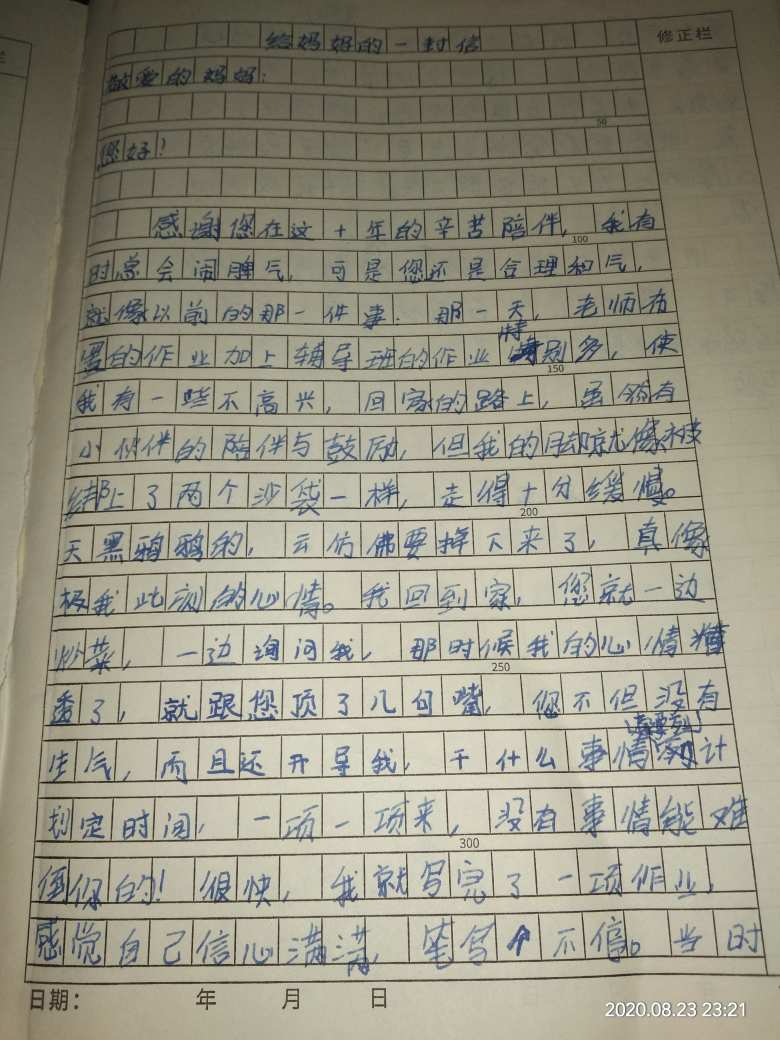 给妈妈的一封信
修正栏
敬爱的妈妈:
50
您好!
感谢您在这十年的辛苦陪伴, 我有
100
时总会闹脾气, 可是您还是合理和气,
就像以前的那一件事: 那一天, 老师布
置的作业加上辅导班的作业特别多, 使
150
我有一些不高兴, 回家的路上, 虽然有
小伙伴的陪伴与鼓励, 但我的脚就像被
绑上了两个沙袋一样, 走得十分缓慢。
200
天黑鸦鸦的, 云仿佛要掉下来了, 真像
极我此刻的心情。我回到家, 您就一边
炒菜, 一边询问我, 那时候我的心情糟
250
透了, 就跟您顶了几句嘴, 您不但没有
生气, 而且还开导我, 干什么事情 计
划定时间, 一项一项来, 没有事情能难
300
倒你的! 很快, 我就写完了一项作业,
感觉自己信心满满, 笔写个不停。当时
日期: 年 月 日
2020.08.23 23:21